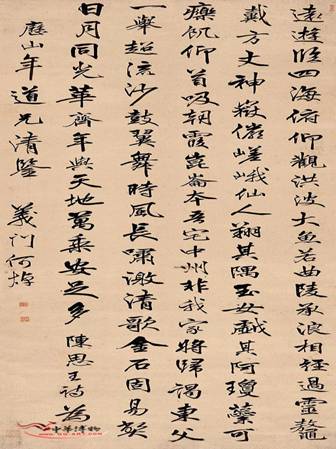 遠遊臨四海俯仰觀洪波大魚若曲陵承浪相經過靈鼇
戴方丈神嶽儼嵯峨仙人翔其隅玉女戲其阿瓊蘂可
療飢仰首吸朝霞崑崙本吾宅中州非我家將歸謁東父
一舉超流沙鼓翼舞時風長嘯激清歌金石固易弊
日月同光華齊年與天地萬乘安足多 陳思王詩為
庭山年道兄清鑒 義門何焯
中華博物